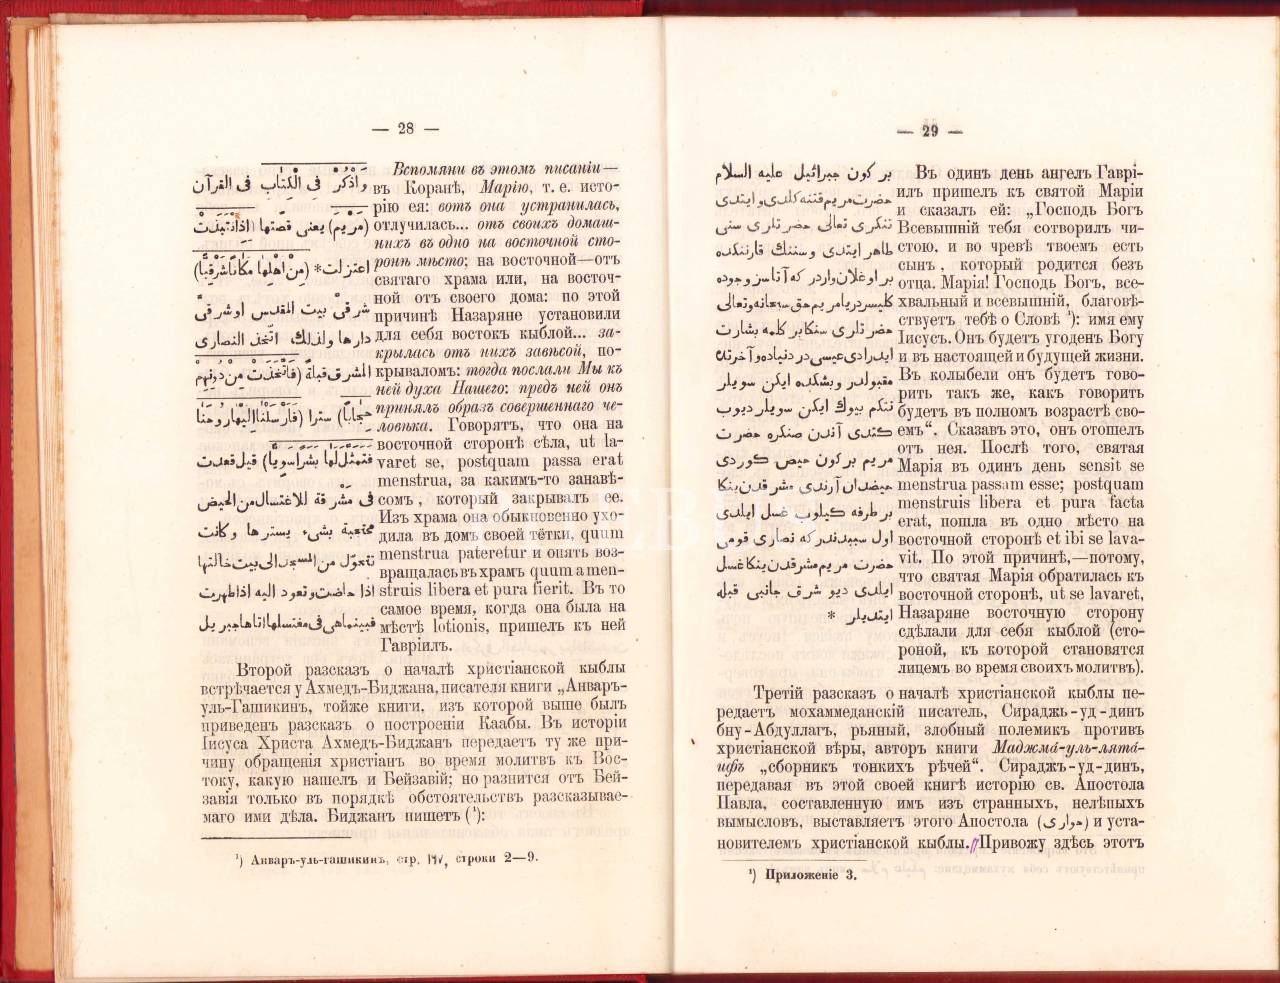 — 28 —
وَاذْكُرْ فِى الْكِتَابِ فى القرآن
(مَرْيَمَ) يعنى قصتها (اِذِانْتَبَذَتْ
اعتزلت* (مِنْ اَهْلِهَا مَكَانًاشَرْقِيًّا)
شرقىّ بيت المقدس اوشرقىّ
دارها ولذلك اتّخذ النصارى
المشرق قبلةً (فَاتَّخَذَتْ مِنْ دُونِهِمْ
حِجَابًا) سترا (فَاَرْسَلْنَااِلَيْهَارُوحَنَا
فَتَمَثَّلَ لَهَا بَشَرًاسَوِيًّا) قيل قعدت
فى مشرقة للاغتسال من الحيض
محتجبة بشىء يسترها وكانت
تتحوّل من المسجد الى بيت خالتها
اذا حاضت وتعود اليه اذاطهرت
فبينماهى فى مغتسلهااتاهاجبريل
Вспомяни въ этомъ писаніи—
въ Коранѣ, Марію, т. е. исто-
рію ея: вотъ она устранилась,
отлучилась... отъ своихъ домаш-
нихъ въ одно на восточной сто-
ронѣ мѣсто; на восточной—отъ
святаго храма или, на восточ-
ной отъ своего дома: по этой
причинѣ Назаряне установили
для себя востокъ кыблой... за-
крылась отъ нихъ завѣсой, по-
крываломъ: тогда послали Мы къ
ней духа Нашего: предъ ней онъ
принялъ образъ совершеннаго че-
ловѣка. Говорятъ, что она на
восточной сторонѣ сѣла, ut la-
varet se, postquam passa erat
menstrua, за какимъ-то занавѣ-
сомъ, который закрывалъ ее.
Изъ храма она обыкновенно ухо-
дила въ домъ своей тётки, quum
menstrua pateretur и опять воз-
вращалась въ храмъ quum a men-
struis libera et pura fierit. Въ то
самое время, когда она была на
мѣстѣ lotionis, пришелъ къ ней
Гавріилъ.
Второй разсказъ о началѣ христіанской кыблы
встрѣчается у Ахмедъ-Биджана, писателя книги „Анваръ-
уль-Гашикинъ, тойже книги, изъ которой выше былъ
приведенъ разсказъ о построеніи Каабы. Въ исторіи
Іисуса Христа Ахмедъ-Биджанъ передаетъ ту же при-
чину обращенія христіанъ во время молитвъ къ Вос-
току, какую нашелъ и Бейзавій; но разнится отъ Бей-
завія только въ порядкѣ обстоятельствъ разсказывае-
маго ими дѣла. Биджанъ пишетъ (¹):
¹) Анваръ-уль-гашикинъ, стр. ١٩٧, строки 2—9.
— 29 —
بر كون جبرائيل عليه السلام
حضرت مريم قتنه كلدى و ايتدى
تنكرى تعالى حضرتلرى سنى
طاهر ايتدى وسننك قارنكده
بر اوغلان واردر كه آتاسز وجوده
كليسردريا مريم حق سبحانه وتعالى
حضرتلرى سنكا بر كلمه بشارت
ايدر ادى عيسى در دنياده و آخرتده
مقبولدر وبشكده ايكن سويلر
نتكم بيوك ايكن سويلر ديوب
كتدى آندن صنكره حضرت
مريم بر كون حيض كوردى
حيضدان آرندى مشرقدن ينكا
بر طرفه كيلوب غسل ايلدى
اول سببدندر كه نصارى قومى
حضرت مريم مشرقدن ينكا غسل
ايلدى ديو شرق جانبى قبله
ايتديلر *
Въ одинъ день ангелъ Гаврі-
илъ пришелъ къ святой Маріи
и сказалъ ей: „Господь Богъ
Всевышній тебя сотворилъ чи-
стою. и во чревѣ твоемъ есть
сынъ, который родится безъ
отца. Марія! Господь Богъ, все-
хвальный и всевышній, благовѣ-
ствуетъ тебѣ о Словѣ ¹): имя ему
Іисусъ. Онъ будетъ угоденъ Богу
и въ настоящей и будущей жизни.
Въ колыбели онъ будетъ гово-
рить такъ же, какъ говорить
будетъ въ полномъ возрастѣ сво-
емъ“. Сказавъ это, онъ отошелъ
отъ нея. Послѣ того, святая
Марія въ одинъ день sensit se
menstrua passam esse; postquam
menstruis libera et pura facta
erat, пошла въ одно мѣсто на
восточной сторонѣ et ibi se lava-
vit. По этой причинѣ,—потому,
что святая Марія обратилась къ
восточной сторонѣ, ut se lavaret,
Назаряне восточную сторону
сдѣлали для себя кыблой (сто-
роной, къ которой становятся
лицемъ во время своихъ молитвъ).
Третій разсказъ о началѣ христіанской кыблы пе-
редаетъ мохаммеданскій писатель, Сираджъ-уд-динъ
бну-Абдуллагъ, рьяный, злобный полемикъ противъ
христіанской вѣры, авторъ книги Маджмá-уль-лятá-
ифъ „сборникъ тонкихъ рѣчей“. Сираджъ-уд-динъ,
передавая въ этой своей книгѣ исторію св. Апостола
Павла, составленную имъ изъ странныхъ, нелѣпыхъ
вымысловъ, выставляетъ этого Апостола (حوارى) и уста-
новителемъ христіанской кыблы. Привожу здѣсь этотъ
¹) Приложеніе 3.